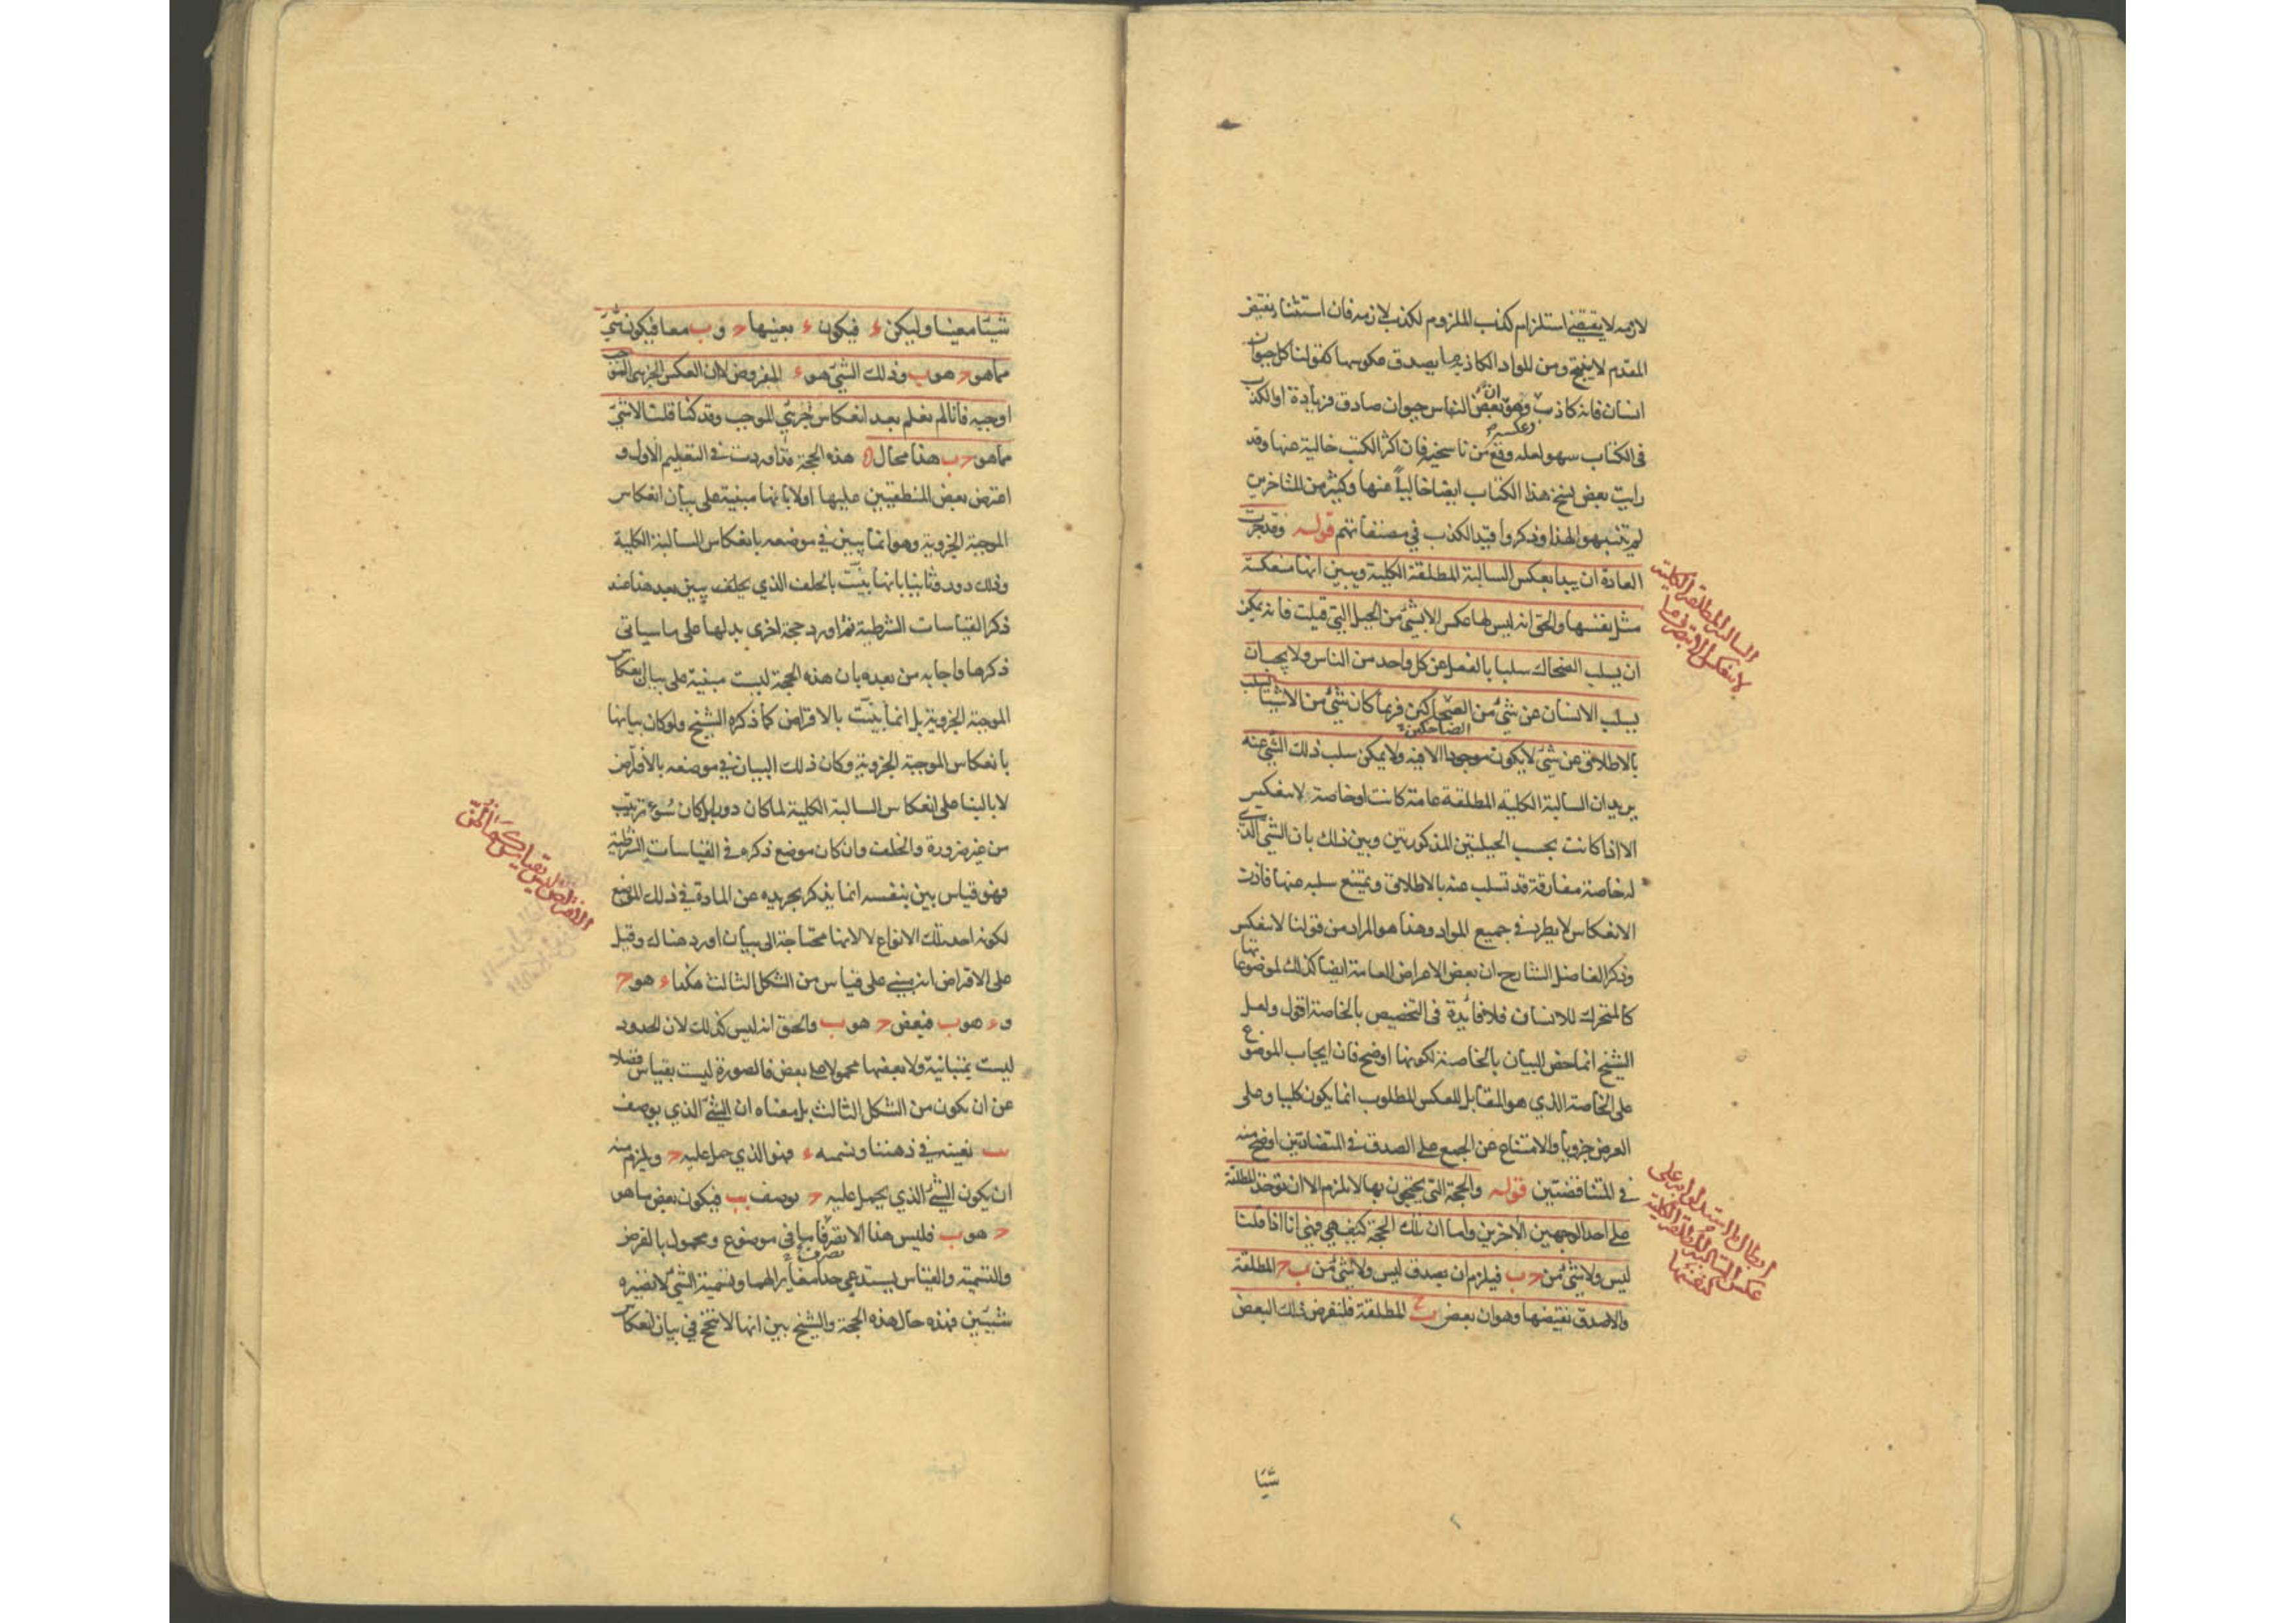 لازمه لا يقتضي استلزام كذب الملزوم لكذب لازمه فان استثناء نقيض
المقدم لا ينتج ومن المواد الكاذبة ما يصدق عكوسها كقولنا كل حيوان
انسان فانه كاذب وعكسه وهو ان بعض الناس حيوان صادق فزيادة او الكذب
في الكتاب سهو لعله وقع من ناسخيه فان اكثر الكتب خالية عنها وقد
رايت بعض نسخ هذا الكتاب ايضا خاليا عنها وكثير من المتاخرين
لم يتنبهوا لهذا وذكروا قيد الكذب في مصنفاتهم قوله وقد جرت
العادة ان يبدا بعكس السالبة المطلقة الكلية ويبين انها منعكسة
مثل نفسها والحق انه ليس لها عكس الا بشئ من الحيل التي قيلت فانه يمكن
ان يسلب الضحاك سلبا بالفعل عن كل واحد من الناس ولا يجب ان
يسلب الانسان عن شئ من الضحاكين فربما كان شئ من الاشياء يسلب
الضاحكين
بالاطلاق عن شئ لا يكون موجودا الا فيه ولا يمكن سلب ذلك الشئ عنه
يريد ان السالبة الكلية المطلقة عامة كانت او خاصة لا تنعكس
الا اذا كانت بحسب الحيلتين المذكورتين وبين ذلك بان الشئ الذي
له خاصة مفارقة قد تسلب عنه بالاطلاق ويمتنع سلبه عنها فاذن
الانعكاس لا يطرد في جميع المواد وهذا هو المراد من قولنا لا تنعكس
وذكر الفاضل الشارح ان بعض الاعراض العامة ايضا كذلك لموضوعاتها
كالمتحرك للانسان فلا فائدة في التخصيص بالخاصة اقول ولعل
الشيخ انما خص البيان بالخاصة لكونها اوضح فان ايجاب الموضوع
على الخاصة الذي هو المقابل للعكس المطلوب انما يكون كليا وعلى
العرض جزويا والامتناع عن الجمع على الصدق في المتضادتين اوضح منه
في المتناقضتين قوله والحجة التي يحتجون بها لا تلزم الا ان توخذ المطلقة
على احد الوجهين الاخرين واما ان تلك الحجة كيف هي فهي انا اذا قلنا
ليس ولا شئ من ح ب فيلزم ان يصدق ليس ولا شئ من ب ح المطلقة
والا صدق نقيضها وهو ان بعض ب ح المطلقة فلنفرض ذلك البعض
شيئا
السالبة المطلقة الكلية
لا تنعكس
ابطال ما استدلوا به على
عكس السالبة المطلقة الكلية
كنفسها
شيئا معينا وليكن ء فيكون ء بعينها ح و ب معا فيكون شئ
مما هو ح هو ب وذلك الشئ هو ء المفروض لا ان العكس الجزئي الموجب
اوجبه فانا لم نعلم بعد انعكاس جزئي الموجب وقد كنا قلنا لا شئ
مما هو ح ب هذا محال هذه الحجة قد اوردت في التعليم الاول و
اعترض بعض المنطقيين عليها اولا بانها مبنية على بيان انعكاس
الموجبة الجزوية وهو انما يتبين في موضعه بانعكاس السالبة الكلية
وذلك دور وثانيا بانها بينت بالخلف الذي يبين بعد هذا عند
ذكر القياسات الشرطية ثم اورد حجة اخرى بدلها على ما سياتي
ذكرها واجابه من بعده بان هذه الحجة ليست مبنية على بيان انعكاس
الموجبة الجزوية بل انما بينت بالافتراض كما ذكره الشيخ ولو كان بيانها
بانعكاس الموجبة الجزوية وكان ذلك البيان في موضعه بالافتراض
لا بالبناء على انعكاس السالبة الكلية لما كان دورا بل كان سوء ترتيب
من غير ضرورة والخلف وان كان موضع ذكره في القياسات الشرطية
فهو قياس بين بنفسه انما يذكر بتجريده عن المادة في ذلك الموضع
لكونه احد تلك الانواع لا لانها محتاجة الى بيان اورد هناك وقيل
على الافتراض انه يبنى على قياس من الشكل الثالث هكذا ء هو ح
و ء هو ب فبعض ح هو ب والحق انه ليس كذلك لان الحدود
ليست بمتباينة ولا بعضها محمولا على بعض فالصورة ليست بقياس فضلا
عن ان يكون من الشكل الثالث بل معناه ان الشئ الذي يوصف
ب نعينه في ذهننا ونسميه ء فهو الذي حمل عليه ح ويلزم منه
ان يكون الشئ الذي يحمل عليه ح يوصف ب فيكون بعض ما هو
ح هو ب فليس هذا الا تصرفا ما في موضوع ومحمول بالفرض
والتسمية والقياس يستدعي حدا مغايرا لهما وتسمية الشئ لا تصيره
شيئين فهذه حال هذه الحجة والشيخ بين انها لا تنتج في بيان انعكاس
الافتراض ليس بقياس